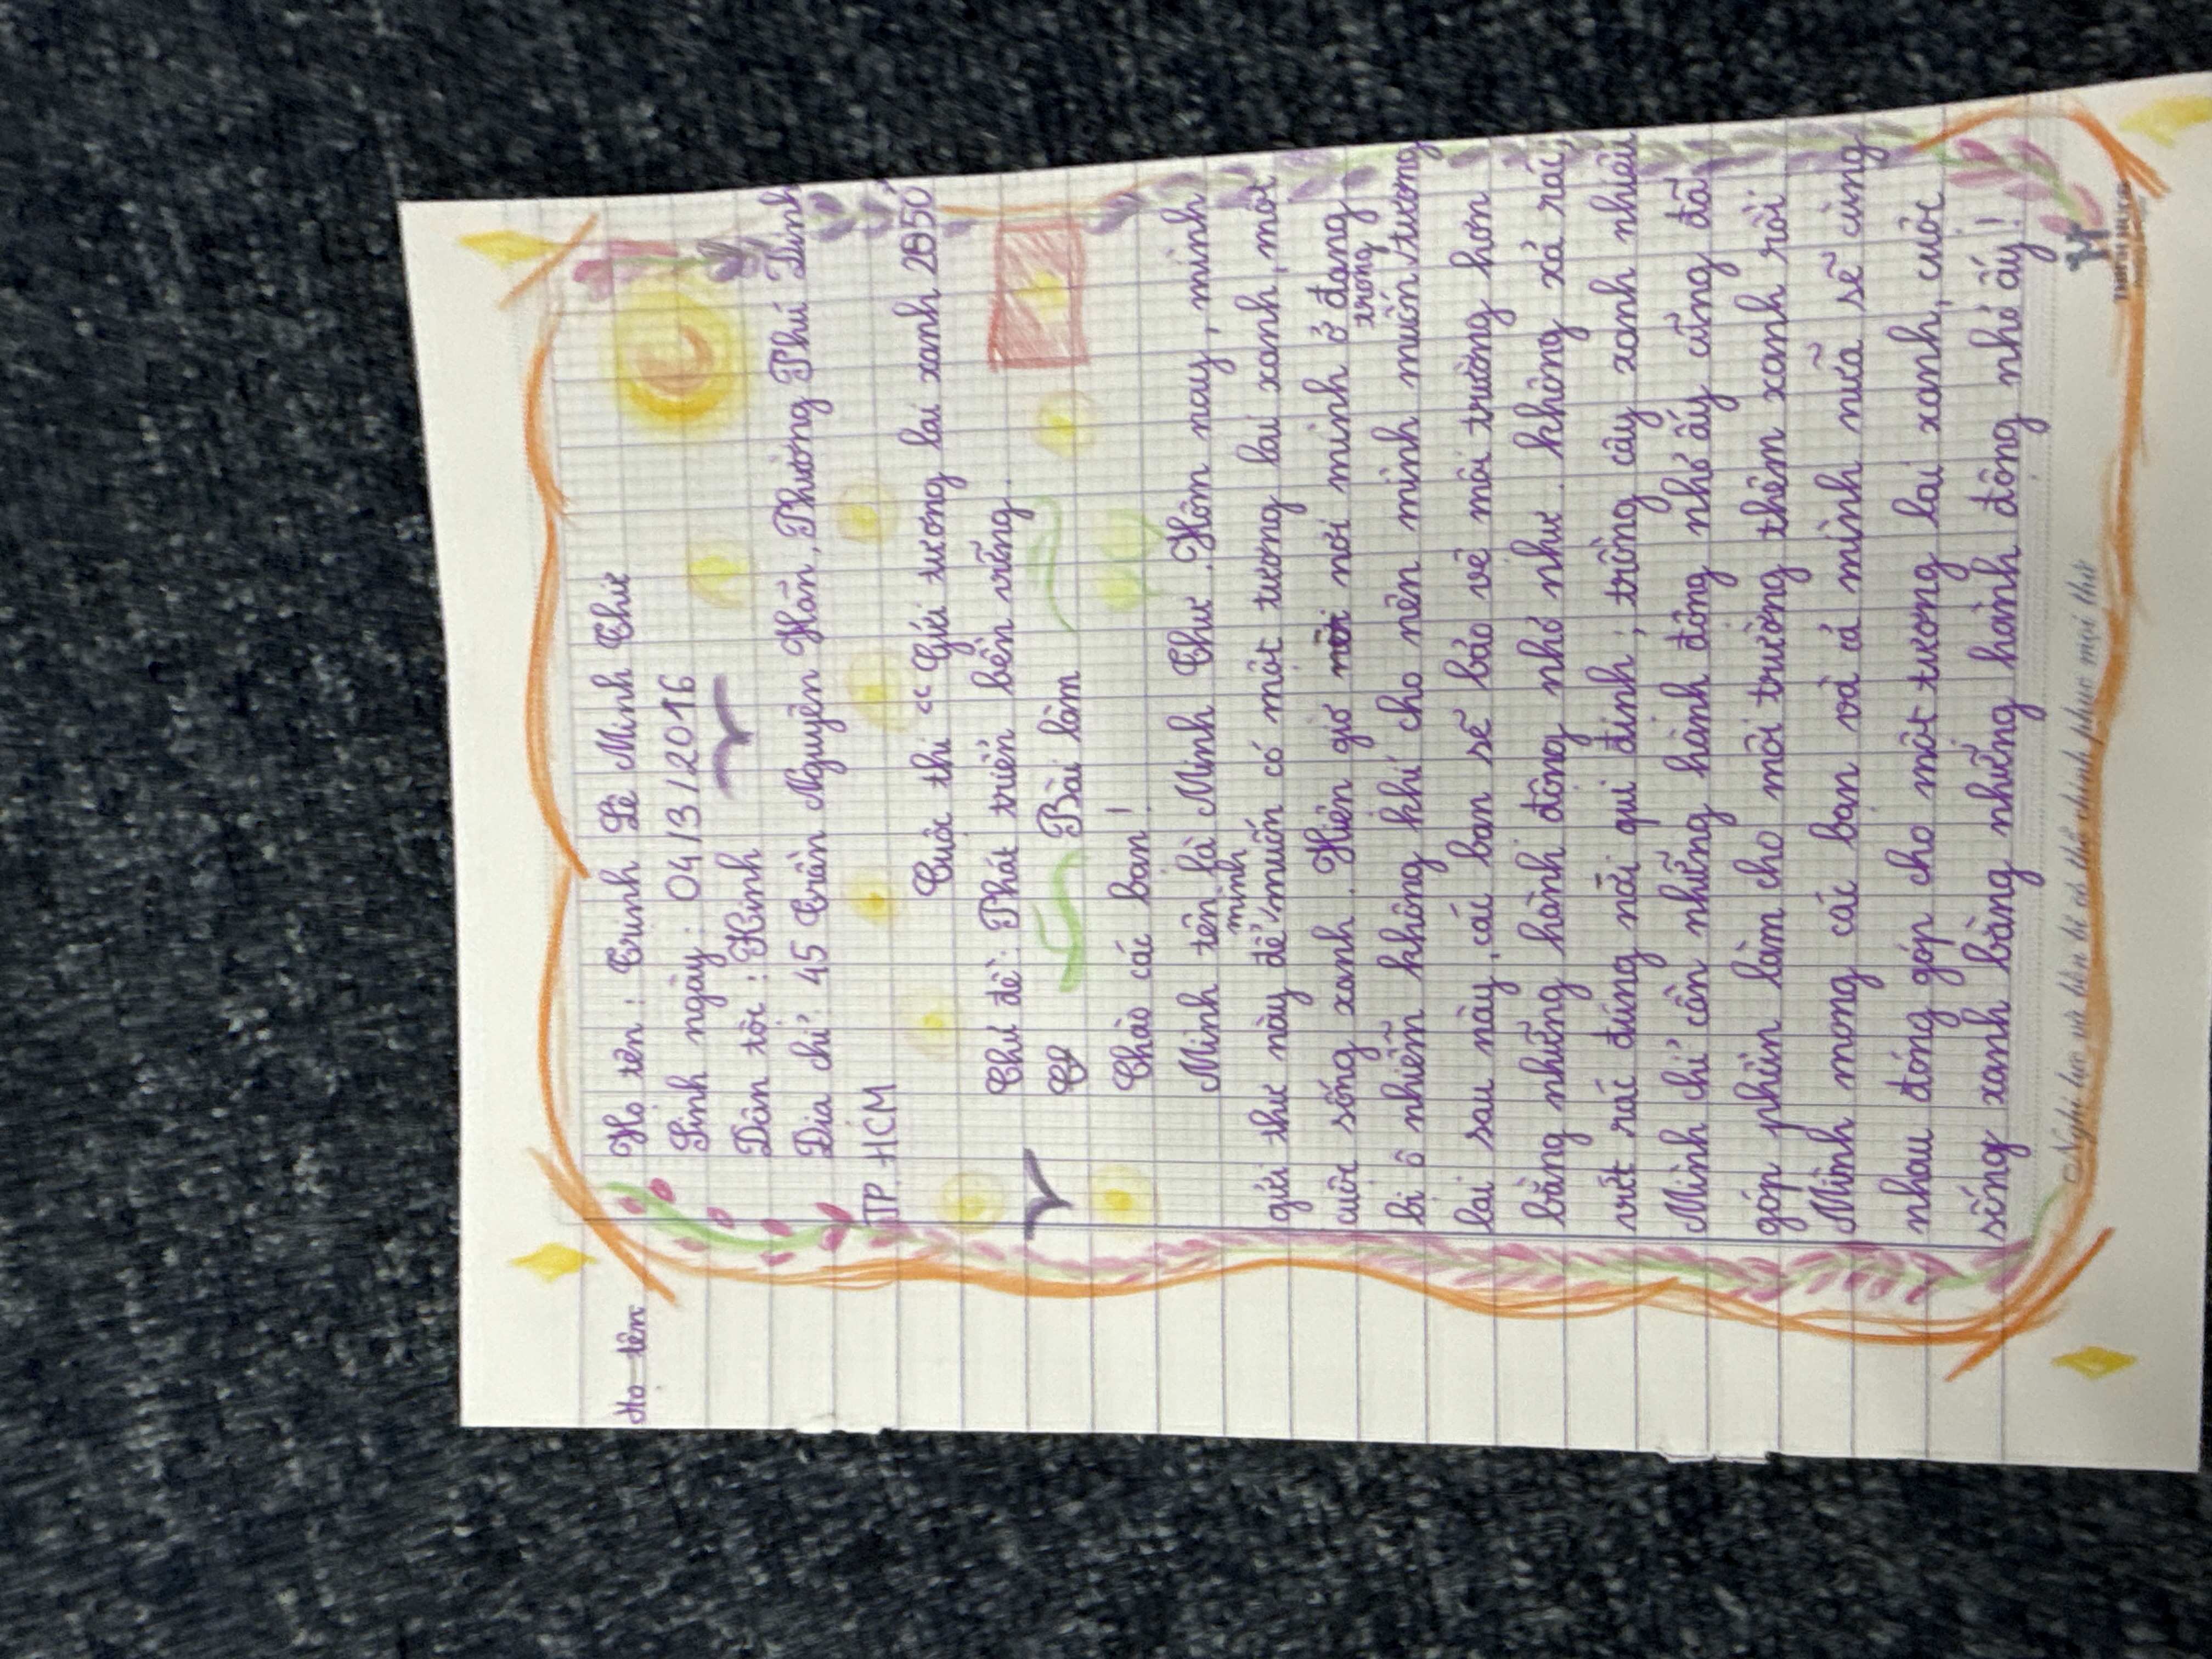 Họ tên
Họ tên : Trịnh Lê Minh Thư
Sinh ngày : 04/3/2016
Dân tộc : Kinh
Địa chỉ : 45 Trần Nguyên Hãn, Phường Phú Định
TP. HCM
Cuộc thi "Gửi tương lai xanh 2050
Chủ đề : Phát triển bền vững.
Bài làm
Chào các bạn !
Mình tên là Minh Thư. Hôm nay, mình
gửi thư này để mình muốn có một tương lai xanh, một
cuộc sống xanh. Hiện giờ nơi mình ở đang
bị ô nhiễm không khí cho nên mình muốn trong tương
lai sau này, các bạn sẽ bảo vệ môi trường hơn
bằng những hành động nhỏ như : không xả rác,
vứt rác đúng nơi qui định ; trồng cây xanh nhiều
Mình chỉ cần những hành động nhỏ ấy cũng đã
góp phần làm cho môi trường thêm xanh rồi
Mình mong các bạn và cả mình nữa sẽ cùng
nhau đóng góp cho một tương lai xanh, cuộc
sống xanh bằng những hành động nhỏ ấy!
Nghị lực và bền bỉ có thể chinh phục mọi thứ